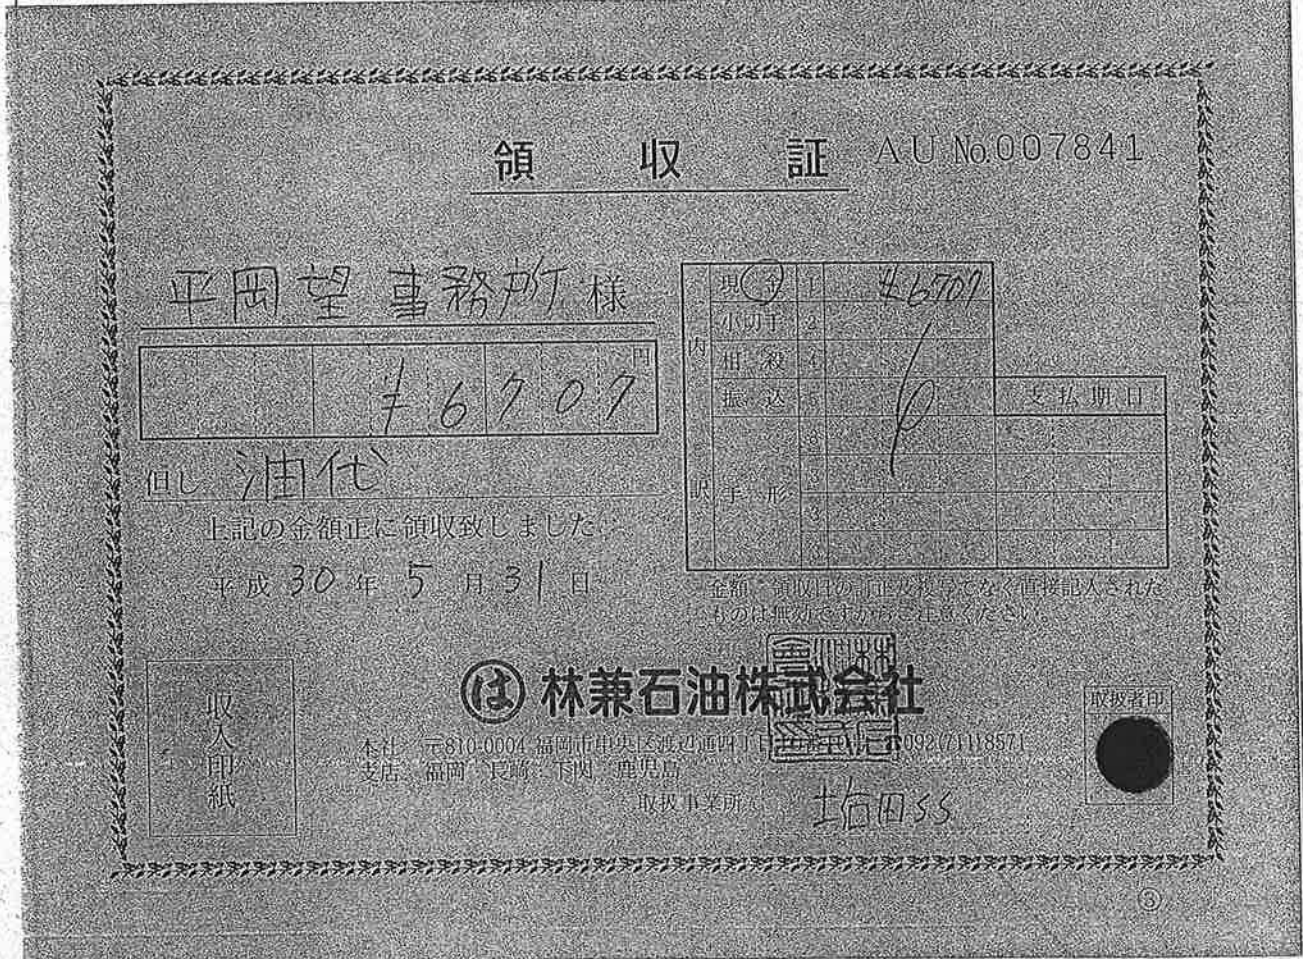 領収証
AU No.007841
平岡望事務所 様
円
¥6707
但し 油代
上記の金額正に領収致しました。
平成 30 年 5 月 31 日
内訳
現金 1 ¥6707
小切手 2
相殺 4
振込
手形
支払期日
金額、領収日の訂正及複写でなく直接記入された
ものは無効ですからご注意ください。
収入印紙
は 林兼石油株式会社
本社 〒810-0004 福岡市中央区渡辺通四丁目 092(711)8571
支店 福岡 長崎 下関 鹿児島
取扱事業所
田SS
取扱者印
③